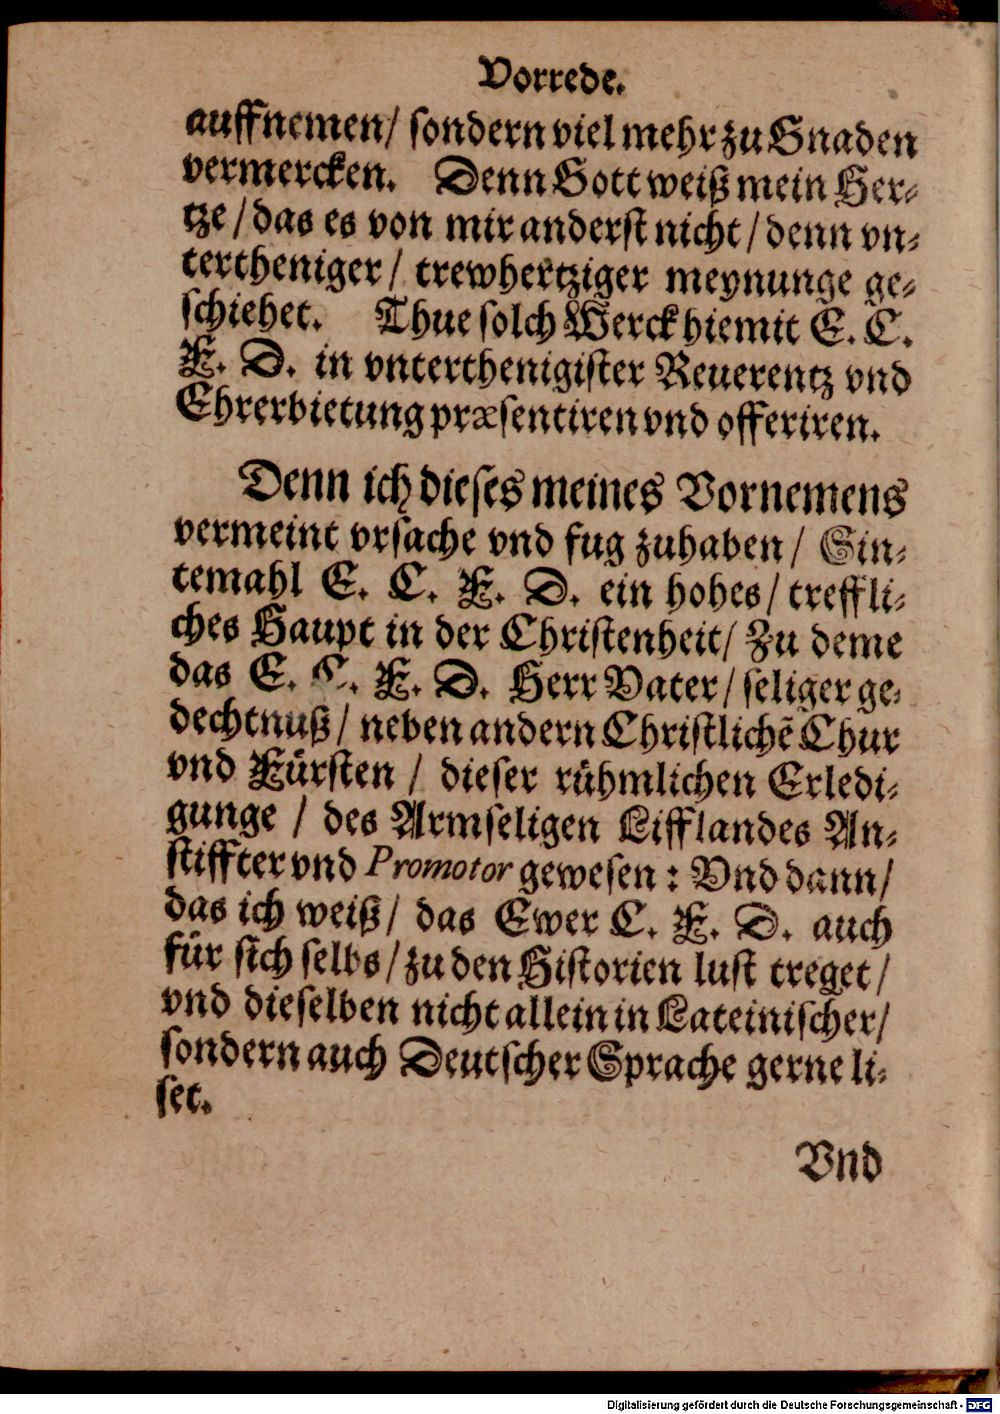 Vorrede.
auffnemen/ sondern viel mehr zu Gnaden
vermercken. Denn Gott weiß mein Her-
tze/das es von mir anderst nicht/denn vn-
tertheniger/ trewhertziger meynunge ge-
schiehet. Thue solch Werck hiemit E. C.
F. D. in vnterthenigister Reuerentz vnd
Ehrerbietung præsentiren vnd offeriren.
Denn ich dieses meines Vornemens
vermeint vrsache vnd fug zuhaben/ Sin-
temahl E. C. F. D. ein hohes/ treffli-
ches Haupt in der Christenheit/ Zu deme
das E. C. F. D. Herr Vater/ seliger ge-
dechtnuß/ neben andern Christlichẽ Chur
vnd Fürsten / dieser rühmlichen Erledi-
gunge / des Armseligen Lifflandes An-
stiffter vnd Promotor gewesen: Vnd dann/
das ich weiß/ das Ewer C. F. D. auch
für sich selbs/zu den Historien lust treget/
vnd dieselben nicht allein in Lateinischer/
sondern auch Deutscher Sprache gerne li-
set.
Vnd
Digitalisierung gefördert durch die Deutsche Forschungsgemeinschaft - DFG